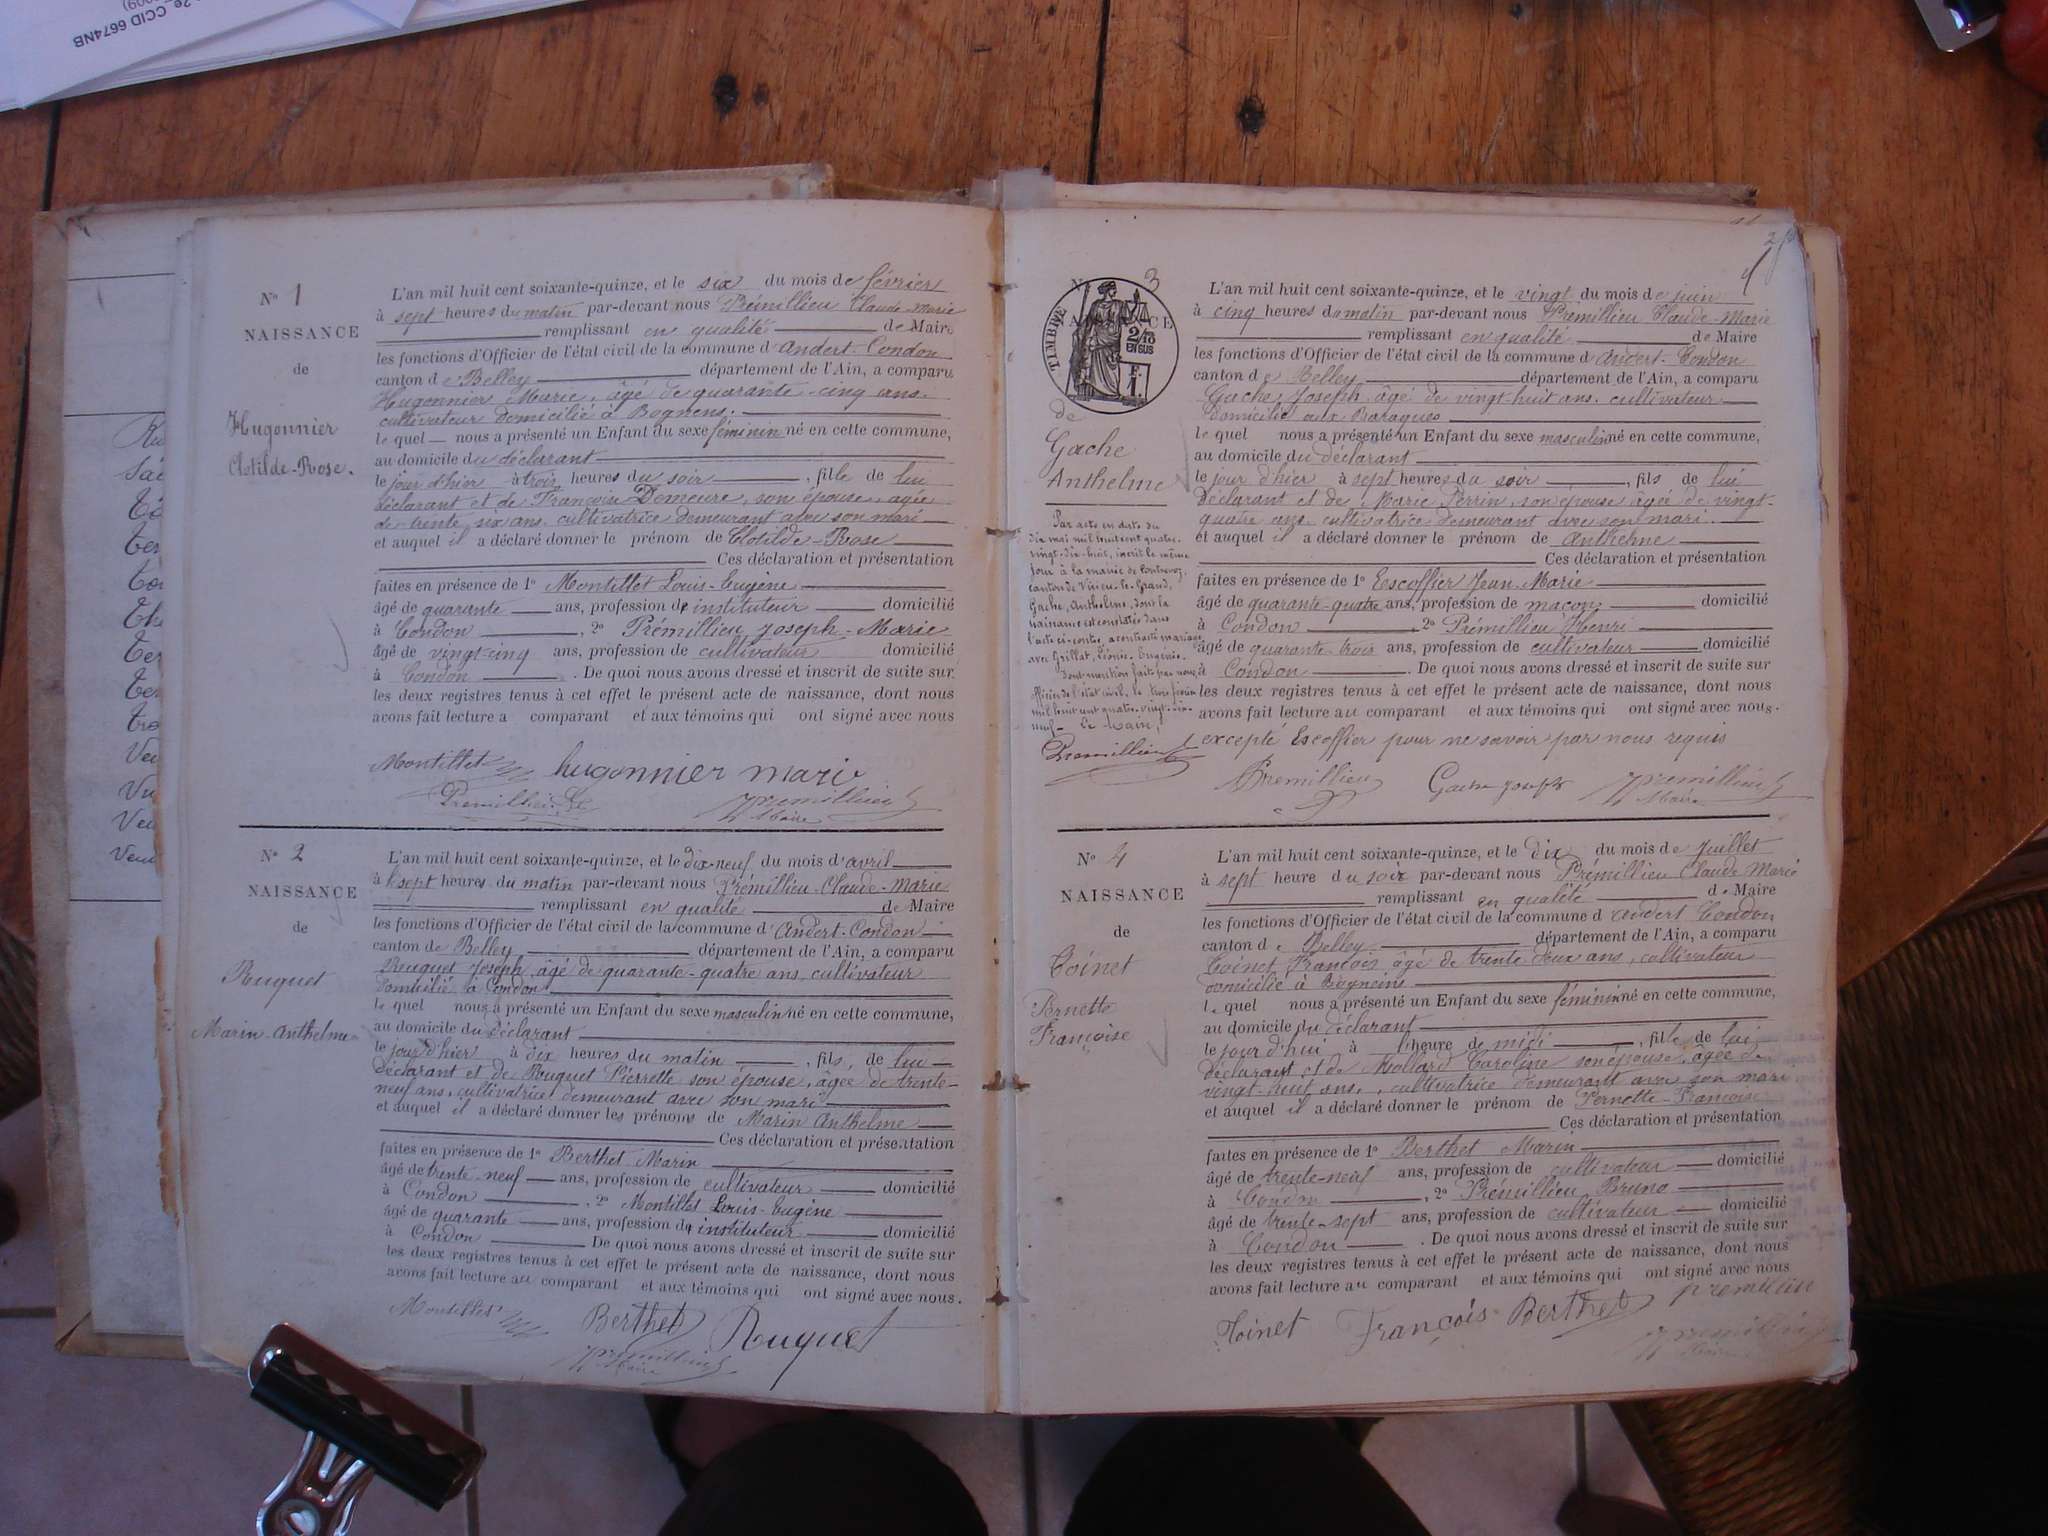 2e CCID 6674NB
N° 1
NAISSANCE
de
Hugonnier
Clotilde-Rose.
L'an mil huit cent soixante-quinze, et le six du mois de février
à sept heures du matin par-devant nous Prémillieu Claude-Marie
remplissant en qualité de Maire
les fonctions d'Officier de l'état civil de la commune d'Andert-Condon
canton de Belley département de l'Ain, a comparu
Hugonnier Marie, âgé de quarante-cinq ans.
cultivateur domicilié à Bognens.
lequel nous a présenté un Enfant du sexe féminin né en cette commune,
au domicile du déclarant
le jour d'hier à trois heures du soir, fille de lui
déclarant et de Françoise Demeure, son épouse, agée
de trente six ans, cultivatrice demeurant avec son mari
et auquel il a déclaré donner le prénom de Clotilde-Rose
Ces déclaration et présentation
faites en présence de 1° Montillet Louis-Eugène
âgé de quarante ans, profession d'instituteur domicilié
à Condon, 2° Prémillieu Joseph-Marie
âgé de vingt-cinq ans, profession de cultivateur domicilié
à Condon. De quoi nous avons dressé et inscrit de suite sur
les deux registres tenus à cet effet le présent acte de naissance, dont nous
avons fait lecture a comparant et aux témoins qui ont signé avec nous
Montillet hugonnier mari
Premillieu
Premillieu
Maire
N° 2
NAISSANCE
de
Ruquet
Marin-Anthelme
L'an mil huit cent soixante-quinze, et le dix-neuf du mois d'avril
à sept heures du matin par-devant nous Prémillieu-Claude-Marie
remplissant en qualité de Maire
les fonctions d'Officier de l'état civil de la commune d'Andert-Condon
canton de Belley département de l'Ain, a comparu
Ruquet Joseph, âgé de quarante-quatre ans, cultivateur
domicilié à Condon
lequel nous a présenté un Enfant du sexe masculin né en cette commune,
au domicile du déclarant
le jour d'hier à dix heures du matin, fils, de lui
déclarant et de Rouquet Pierrette son épouse, âgée de trente-
neuf ans, cultivatrice demeurant avec son mari
et auquel il a déclaré donner les prénoms de Marin Anthelme
Ces déclaration et présentation
faites en présence de 1° Berthet Marin
âgé de trente-neuf ans, profession de cultivateur domicilié
à Condon, 2° Montillet Louis-Eugène
âgé de quarante ans, profession d'instituteur domicilié
à Condon De quoi nous avons dressé et inscrit de suite sur
les deux registres tenus à cet effet le présent acte de naissance, dont nous
avons fait lecture au comparant et aux témoins qui ont signé avec nous.
Montillet Berthet Ruquet
Premillieu
Maire
N° 3
TIMBRE
2/10
EN SUS
F.
1.
de
Gache
Anthelme
Par acte en date du
dix mai mil huit cent quatre-
vingt-dix-huit, inscrit le même
jour à la mairie de Contrevoz,
canton de Virieu-le-Grand,
Gache, Anthelme, dont la
naissance est constatée dans
l'acte ci-contre, a contracté mariage
avec Grillat, Léonie-Eugénie.
Dont mention faite par nous,
officier de l'état civil, le trois
mil huit cent quatre-vingt-dix-
neuf. Le Maire,
Premillieu
L'an mil huit cent soixante-quinze, et le vingt du mois de juin
à cinq heures du matin par-devant nous Prémillieu Claude-Marie
remplissant en qualité de Maire
les fonctions d'Officier de l'état civil de la commune d Andert-Condon
canton de Belley département de l'Ain, a comparu
Gache, Joseph, âgé de vingt-huit ans, cultivateur
domicilié aux Baraques
lequel nous a présenté un Enfant du sexe masculin né en cette commune,
au domicile du déclarant
le jour d'hier à sept heures du soir, fils de lui
déclarant et de Marie Perrin, son épouse âgée de vingt-
quatre ans, cultivatrice demeurant avec son mari.
et auquel il a déclaré donner le prénom de Anthelme
Ces déclaration et présentation
faites en présence de 1° Escoffier Jean-Marie
âgé de quarante-quatre ans, profession de maçon, domicilié
à Condon, 2° Prémillieu Henri
âgé de quarante-trois ans, profession de cultivateur domicilié
à Condon. De quoi nous avons dressé et inscrit de suite sur
les deux registres tenus à cet effet le présent acte de naissance, dont nous
avons fait lecture au comparant et aux témoins qui ont signé avec nous.
excepté Escoffier pour ne savoir par nous requis
Premillieu Gache joseph Premillieu
Maire
N° 4
NAISSANCE
de
Coinet
Pernette
Françoise
L'an mil huit cent soixante-quinze, et le dix du mois de juillet
à sept heure du soir par-devant nous Prémillieu Claude Marie
remplissant en qualité de Maire
les fonctions d'Officier de l'état civil de la commune d'Andert Condon
canton de Belley département de l'Ain, a comparu
Coinet François âgé de trente deux ans, cultivateur
domicilié à Bognens
lequel nous a présenté un Enfant du sexe féminin né en cette commune,
au domicile du déclarant
le jour d'hui à l'heure de midi, fille de lui
déclarant et de Mollard Caroline son épouse, âgée de
vingt-huit ans, cultivatrice demeurant avec son mari
et auquel il a déclaré donner le prénom de Pernette-Françoise
Ces déclaration et présentation
faites en présence de 1° Berthet Marin
âgé de trente-neuf ans, profession de cultivateur domicilié
à Condon, 2° Prémillieu Bruno
âgé de trente-sept ans, profession de cultivateur domicilié
à Condon. De quoi nous avons dressé et inscrit de suite sur
les deux registres tenus à cet effet le présent acte de naissance, dont nous
avons fait lecture au comparant et aux témoins qui ont signé avec nous
Coinet François Berthet premillieu
Premillieu
Maire